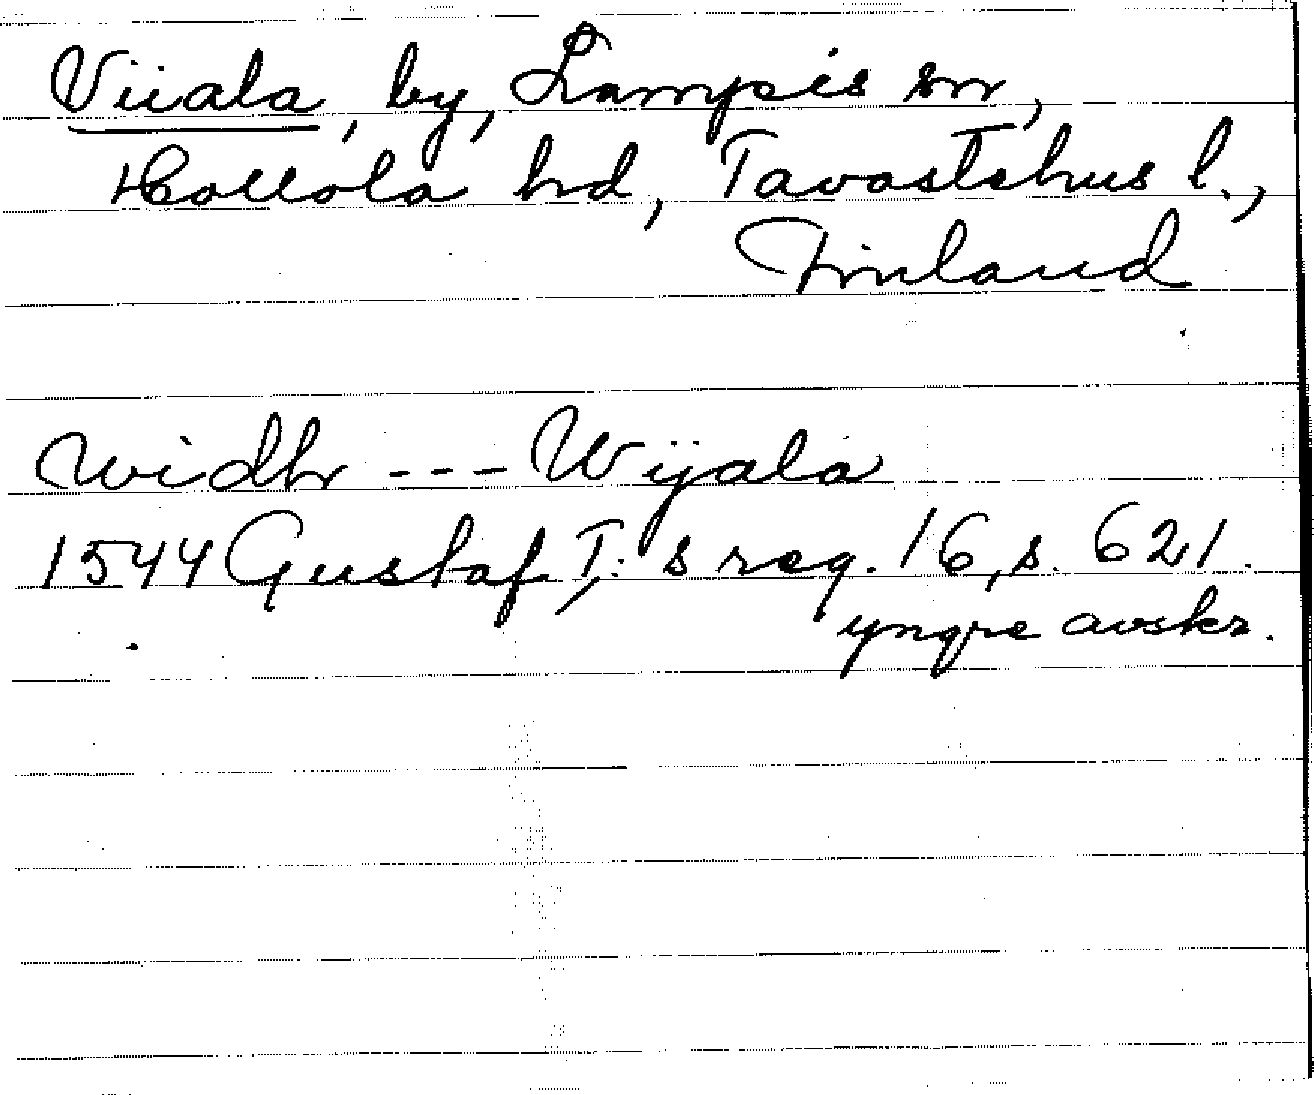 Viiala, by, Lampis sn,
Hollola hd, Tavastehus l.,
Finland
widh --- Wÿala
1544 Gustaf I:s reg. 16, s. 621.
yngre avskr.